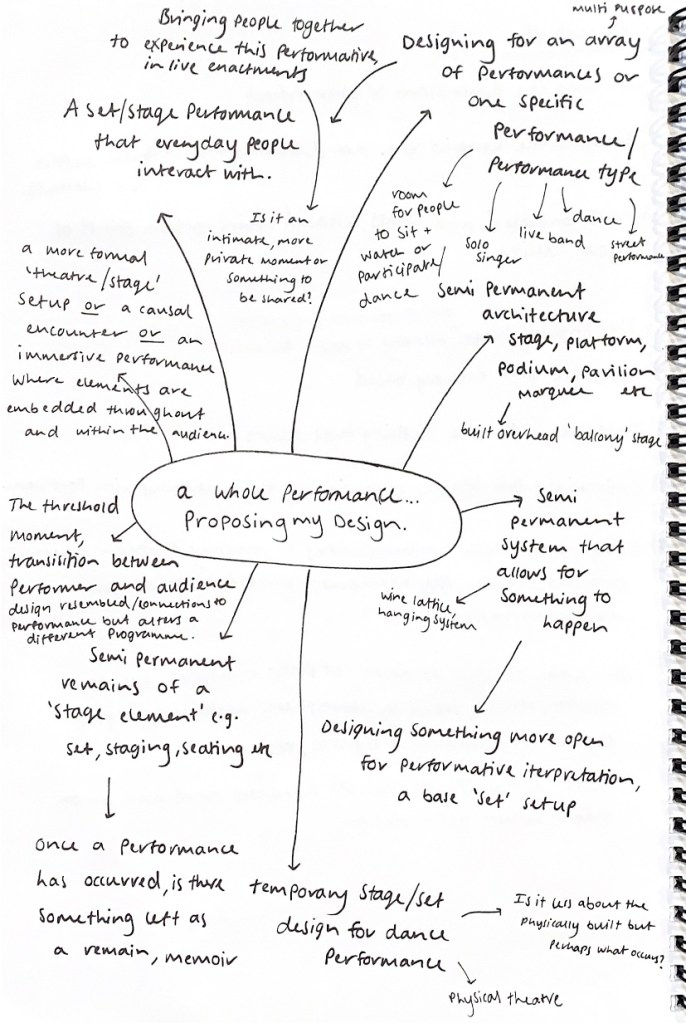 Bringing people together
to experience this performative,
in live enactments
multi purpose
Designing for an array
of performances or
one specific
performance/
performance type
A set/stage performance
that everyday people
interact with.
room
for people
to sit +
watch or
participate/
dance
solo
singer
live band
dance
street
performance
Is it an
intimate, more
private moment or
something to
be shared?
a more formal
'theatre/stage'
setup or a causal
encounter or an
immersive performance
where elements are
embedded throughout
and within the audience.
Semi Permanent
architecture
stage, platform,
podium, pavilion
marquee etc
built overhead 'balcony' stage
a whole performance...
Proposing my Design.
The threshold
moment,
transisition between
performer and audience
design resembled/connections to
performance but alters a
different programme.
Semi permanent
system that
allows for
something to
happen
wire lattice,
hanging system
Semi permanent
remains of a
'stage element' e.g.
set, staging, seating etc
Designing something more open
for performative iterpretation,
a base 'set' setup
once a performance
has occurred, is there
something left as
a remain, memoir
temporary stage/set
design for dance
performance
Is it less about the
physically built but
perhaps what occurs?
physical theatre